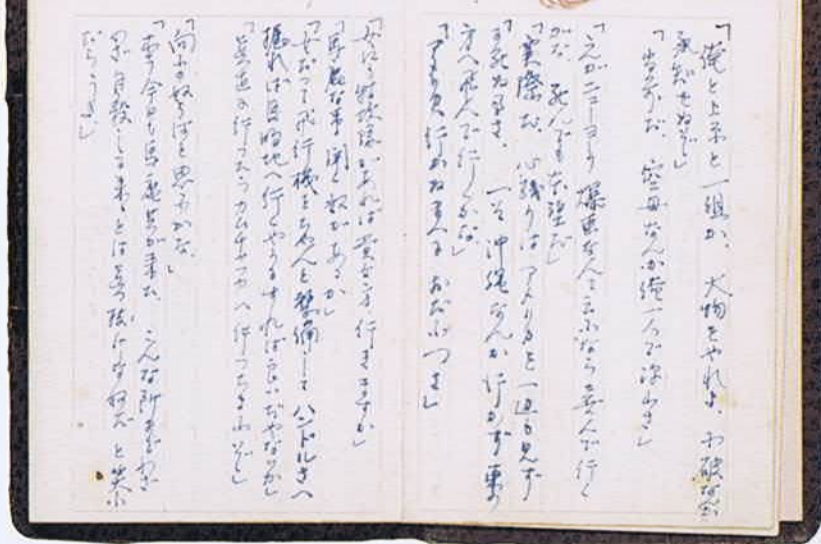 「俺と上京と一組か、大物をやれよ、小破では
承知せぬぞ」
「当り前だ。空母なんか俺一人で沢山さ」
「これがニューヨーク爆撃なんて云ふなら喜んで行く
がな、死んでも本望だ」
「実際だ。心残りはアメリカを一辺も見ず
に死ぬ事さ。一そ沖縄なんか行かず東の
方へ飛んで行くかな」
「アメリカ行かぬまへに おだぶつさ」
「女にも特攻隊があれば貴女方行きますか」
「馬鹿な事聞く奴があるか」
「女だって飛行機をちゃんと整備して ハンドルさへ
握れば目的地へ行くやうにすれば良いぢやないか」
「真直ぐ行ったつてカムチャツカへ行つちまふぞ」
「向ふの奴等何と思ふかな」
「ホラ今日も馬鹿共が来た、こんな所までわざ
わざ自殺しに来るとは間抜けな奴だ と笑ふ
だらうよ」